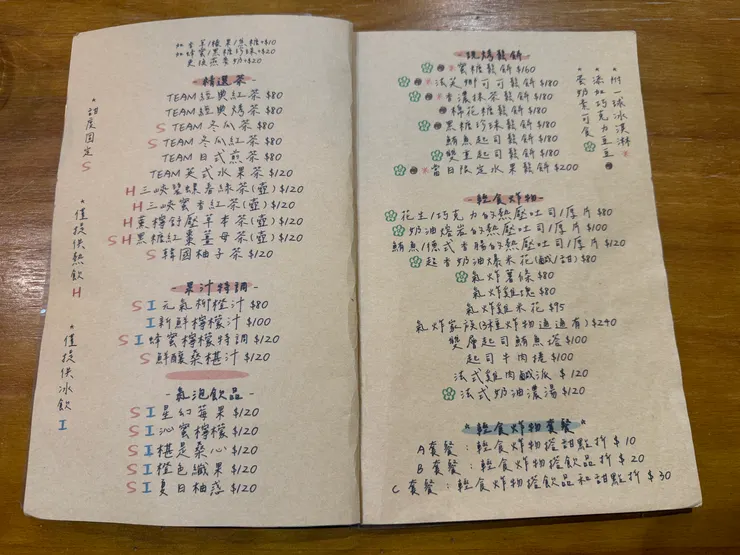 加香草/榛果/焦糖+$10
加蜂蜜/黑糖珍珠+$20
更換燕麥奶+$20
-精選茶-
TEAM經典紅茶 $80
TEAM經典烤茶 $80
S TEAM冬瓜茶 $80
S TEAM冬瓜紅茶 $80
TEAM日式煎茶 $80
TEAM英式水果茶 $120
H 三峽碧螺春綠茶(壺) $120
H 三峽蜜香紅茶(壺) $120
H 薰檸舒壓草本茶(壺) $120
S H 黑糖紅棗薑母茶(壺) $120
S 韓國柚子茶 $120
-果汁特調-
S I 元氣柳橙汁 $80
I 新鮮檸檬汁 $100
S I 蜂蜜檸檬特調 $120
S 鮮釀桑椹汁 $120
-氣泡飲品-
S I 星幻莓果 $120
S I 沁蜜檸檬 $120
S I 椹是桑心 $120
S I 橙色纖果 $120
S I 夏日柚惑 $120
*甜度固定 S
*僅提供熱飲 H
*僅提供冰飲 I
-現烤鬆餅-
蜜糖鬆餅 $160
法芙娜可可鬆餅 $180
香濃抹茶鬆餅 $180
棉花糖鬆餅 $180
黑糖珍珠鬆餅 $180
鮪魚起司鬆餅 $180
雙重起司鬆餅 $180
當日限定水果鬆餅 $200
*附一球冰淇淋
*添加巧克力豆豆
*蛋奶素可食
-輕食炸物-
花生/巧克力的熱壓吐司/厚片 $80
奶油熔岩的熱壓吐司/厚片 $100
鮪魚/德式香腸的熱壓吐司/厚片 $120
起香奶油爆米花(鹹/甜) $80
氣炸薯條 $80
氣炸雞塊 $80
氣炸雞米花 $95
氣炸家族(3種炸物通通有) $240
雙層起司鮪魚塔 $100
起司牛肉捲 $100
法式雞肉鹹派 $120
法式奶油濃湯 $120
*輕食炸物套餐*
A套餐：輕食炸物搭甜點折 $10
B套餐：輕食炸物搭飲品折 $20
C套餐：輕食炸物搭飲品和甜點折 $30